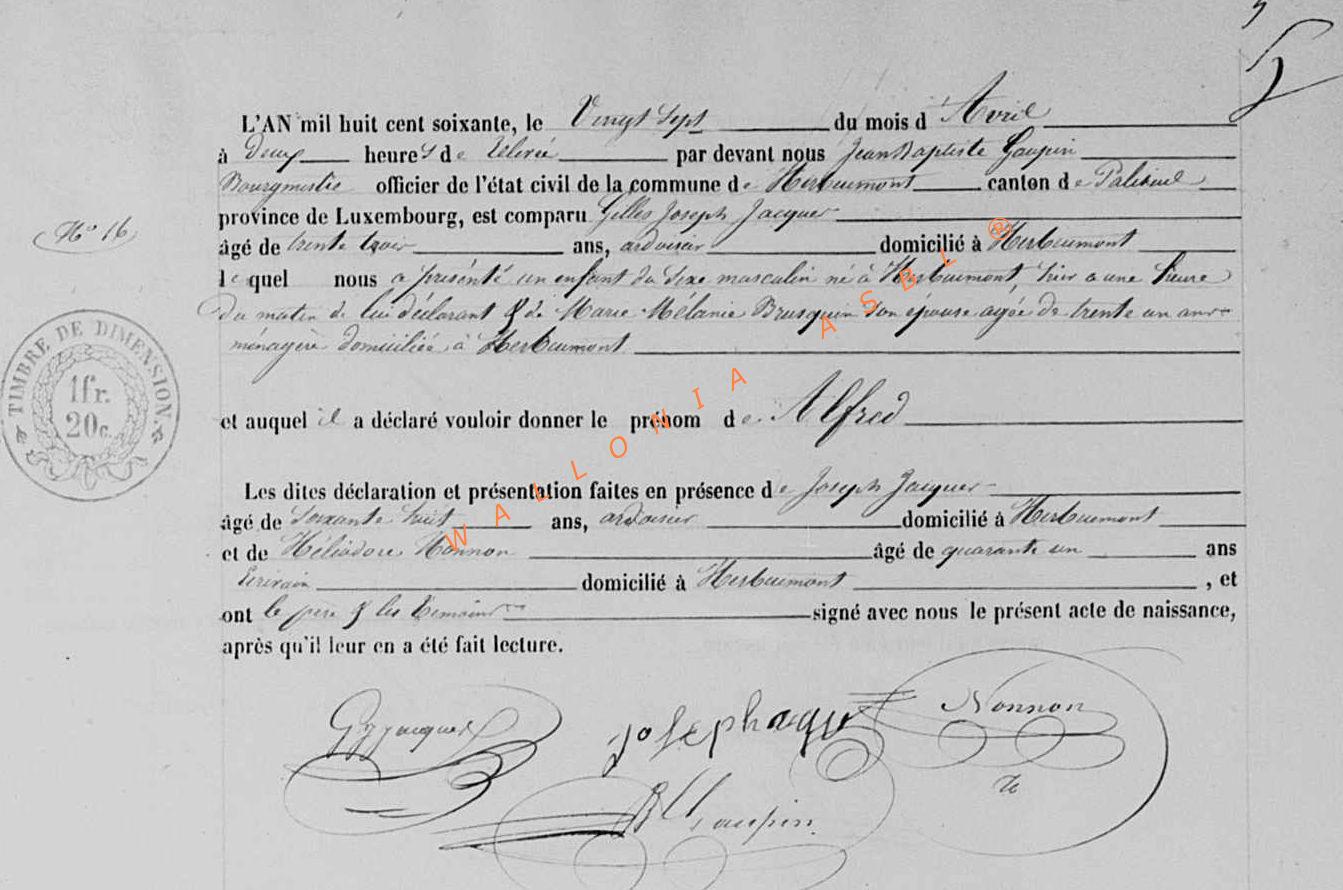 L'AN mil huit cent soixante, le Vingt Sept du mois d'Avril
à Deux heures de relevée par devant nous Jean Baptiste Gaupin
Bourgmestre officier de l'état civil de la commune de Herbeumont canton de Paliseul
province de Luxembourg, est comparu Gilles Joseph Jacques
N° 16
âgé de trente trois ans, ardoisier domicilié à Herbeumont
lequel nous a présenté un enfant du sexe masculin né à Herbeumont, hier a une heure
du matin de lui déclarant & de Marie Mélanie Brusquin son épouse agée de trente un ans
ménagère domiciliée à Herbeumont
TIMBRE DE DIMENSION
1 fr.
20 c.
et auquel il a déclaré vouloir donner le prénom de Alfred
Les dites déclaration et présentation faites en présence de Joseph Jacques
âgé de soixante huit ans, ardoisier domicilié à Herbeumont
et de Héliodore Nonnon âgé de quarante un ans
Ecrivain domicilié à Herbeumont , et
ont le père & les témoins signé avec nous le présent acte de naissance,
après qu'il leur en a été fait lecture.
WALLONIA ASBL ®
Jacques
Joseph Jaque
Nonnon
h
Gaupin